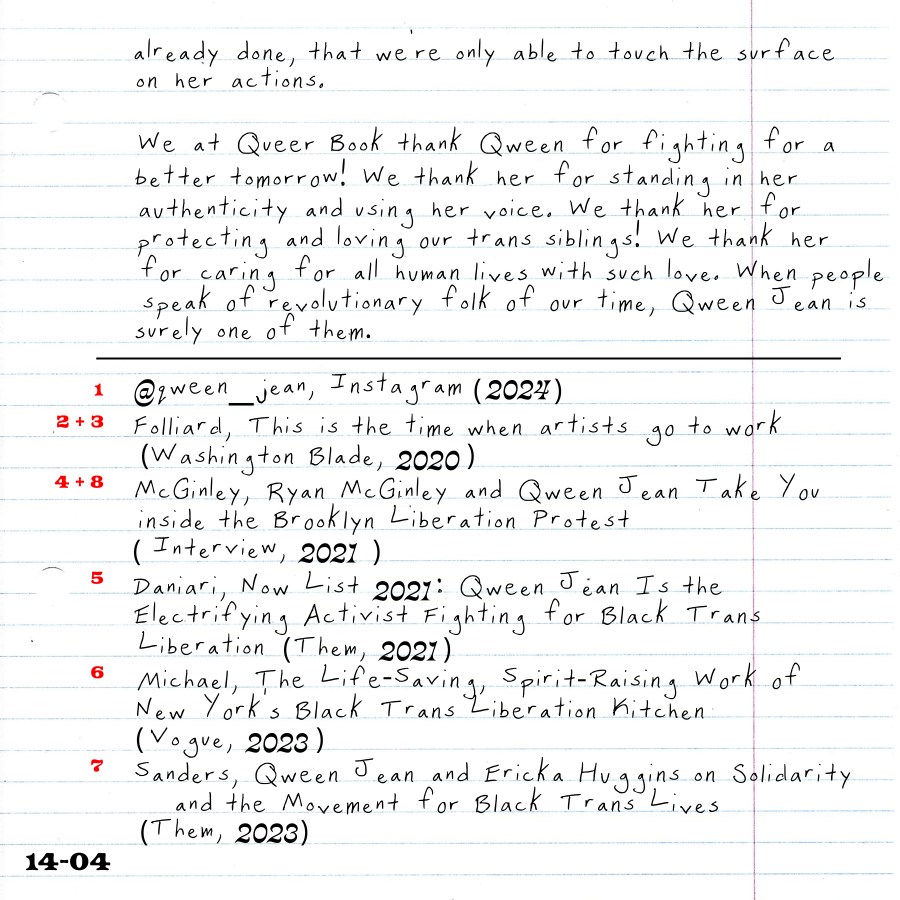 already done, that we're only able to touch the surface
on her actions.
We at Queer Book thank Qween for fighting for a
better tomorrow! We thank her for standing in her
authenticity and using her voice. We thank her for
protecting and loving our trans siblings! We thank her
for caring for all human lives with such love. When people
speak of revolutionary folk of our time, Qween Jean is
surely one of them.
1 @qween_jean, Instagram (2024)
2 + 3 Folliard, This is the time when artists go to work
(Washington Blade, 2020)
4 + 8 McGinley, Ryan McGinley and Qween Jean Take You
inside the Brooklyn Liberation Protest
( Interview, 2021 )
5 Daniari, Now List 2021: Qween Jean Is the
Electrifying Activist Fighting for Black Trans
Liberation (Them, 2021)
6 Michael, The Life-Saving, Spirit-Raising Work of
New York's Black Trans Liberation Kitchen
(Vogue, 2023)
7 Sanders, Qween Jean and Ericka Huggins on Solidarity
and the Movement for Black Trans Lives
(Them, 2023)
14-04